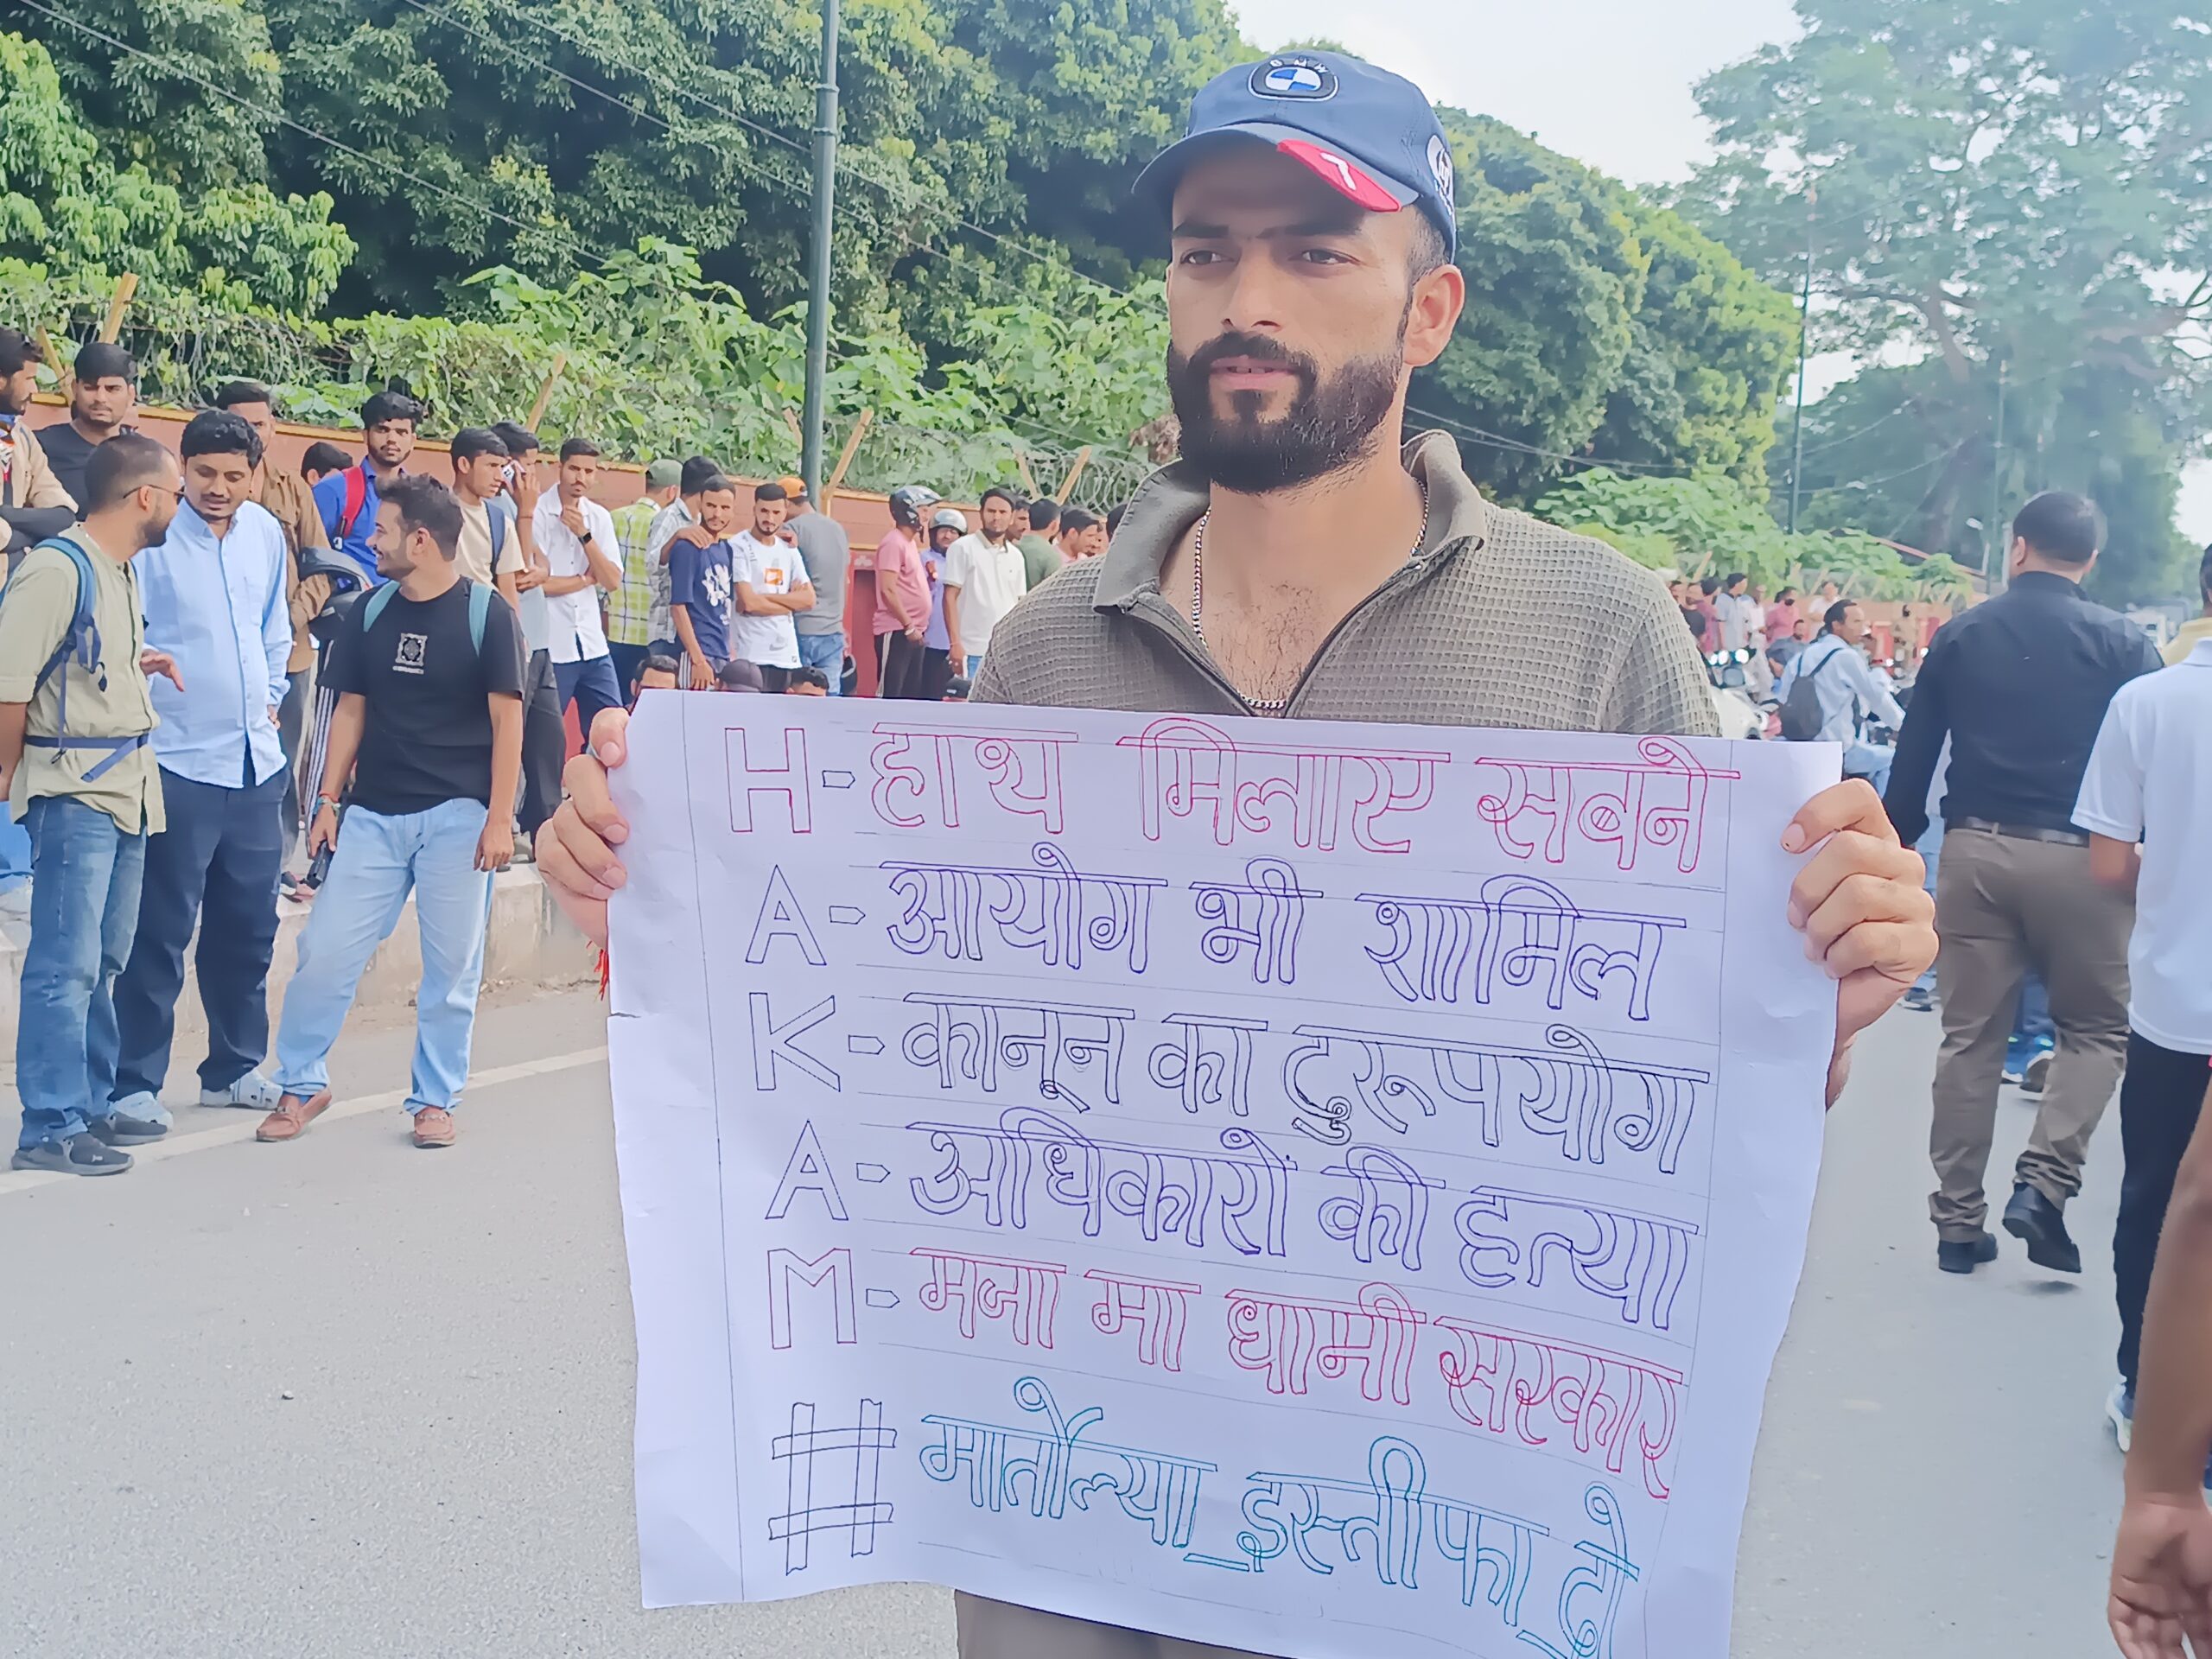 BMW
7
H - हाथ मिलाए सबने
A - आयोग भी शामिल
K - कानून का दुरूपयोग
A - अधिकारों की हत्या
M - मजा मा धामी सरकार
# मार्तोल्या_इस्तीफा_दो